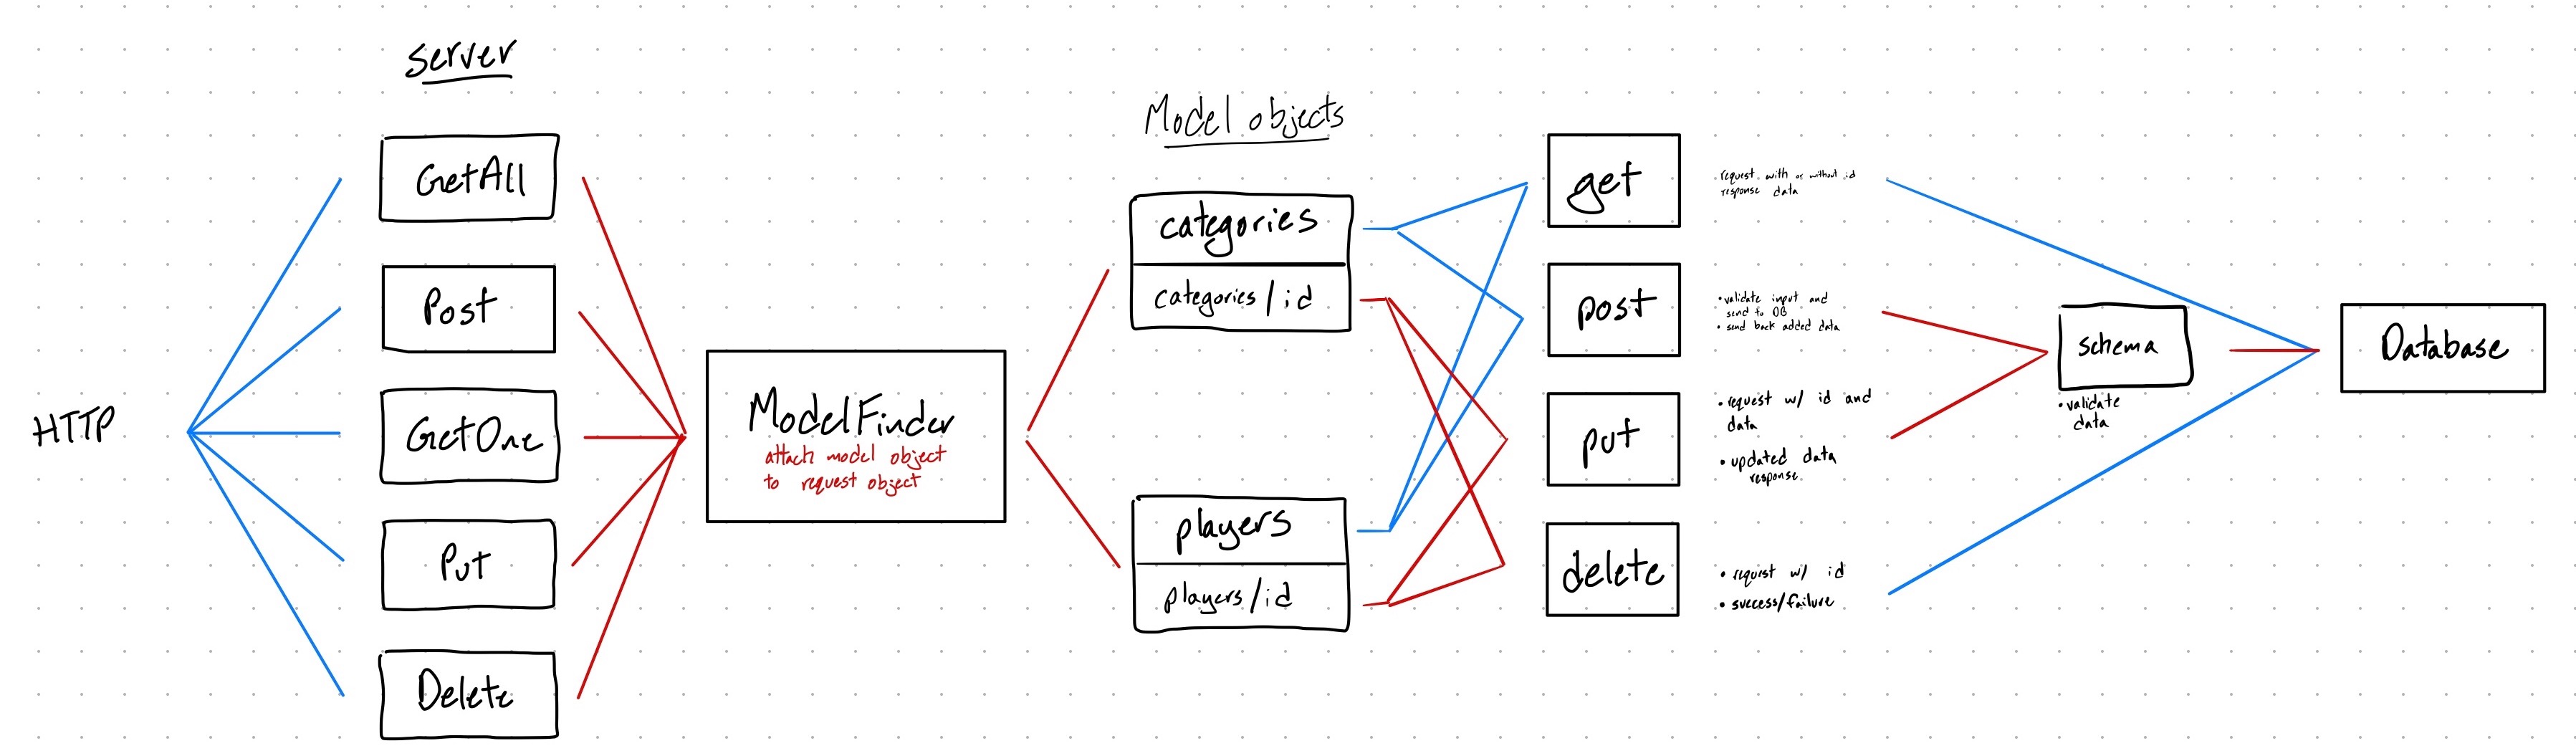 server
GetAll
Post
GetOne
Put
Delete
HTTP
ModelFinder
attach model object
to request object
Model objects
categories
categories/id
players
players/id
get
request with or without id
response data
post
• validate input and
send to DB
• send back added data
put
• request w/ id and
data
• updated data
response
delete
• request w/ id
• success/failure
schema
• validate
data
Database